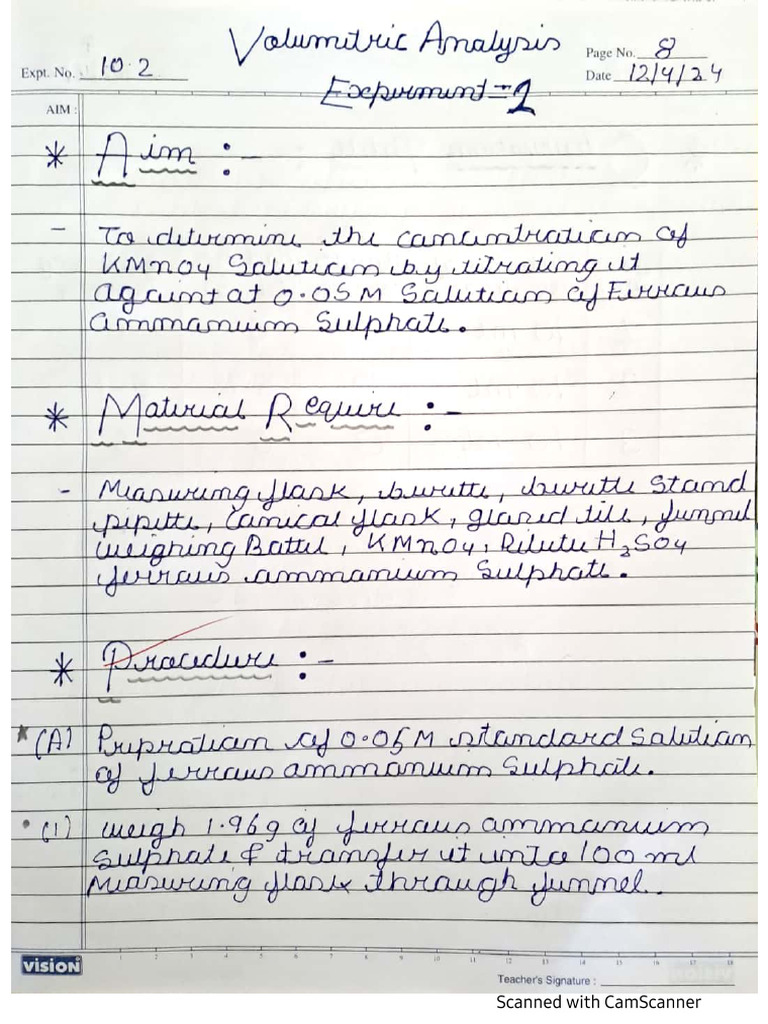 Volumetric Analysis
Expt. No. 10.2
Page No. 8
Date 12/4/24
Experiment = 1
AIM :
* Aim :-
- To determine the concentration of
KMnO4 Solution by titrating it
against at 0.05 M Solution of Ferrous
ammonium Sulphate.
* Material Require :-
- Measuring flask, burette, burette Stand
pipette, Conical flask, glazed tile, funnel
weighing Bottel, KMnO4, Dilute H2SO4
ferrous ammonium Sulphate.
* Procedure :-
* (A) Prepration of 0.05 M standard Solution
of ferrous ammonium Sulphate.
• (1) weigh 1.96g of ferrous ammonium
Sulphate & transfer it into 100 ml
Measuring flask through funnel.
VISION
1 2 3 4 5 6 7 8 9 10 11 12 13 14 15 16 17 18
Teacher's Signature :
Scanned with CamScanner